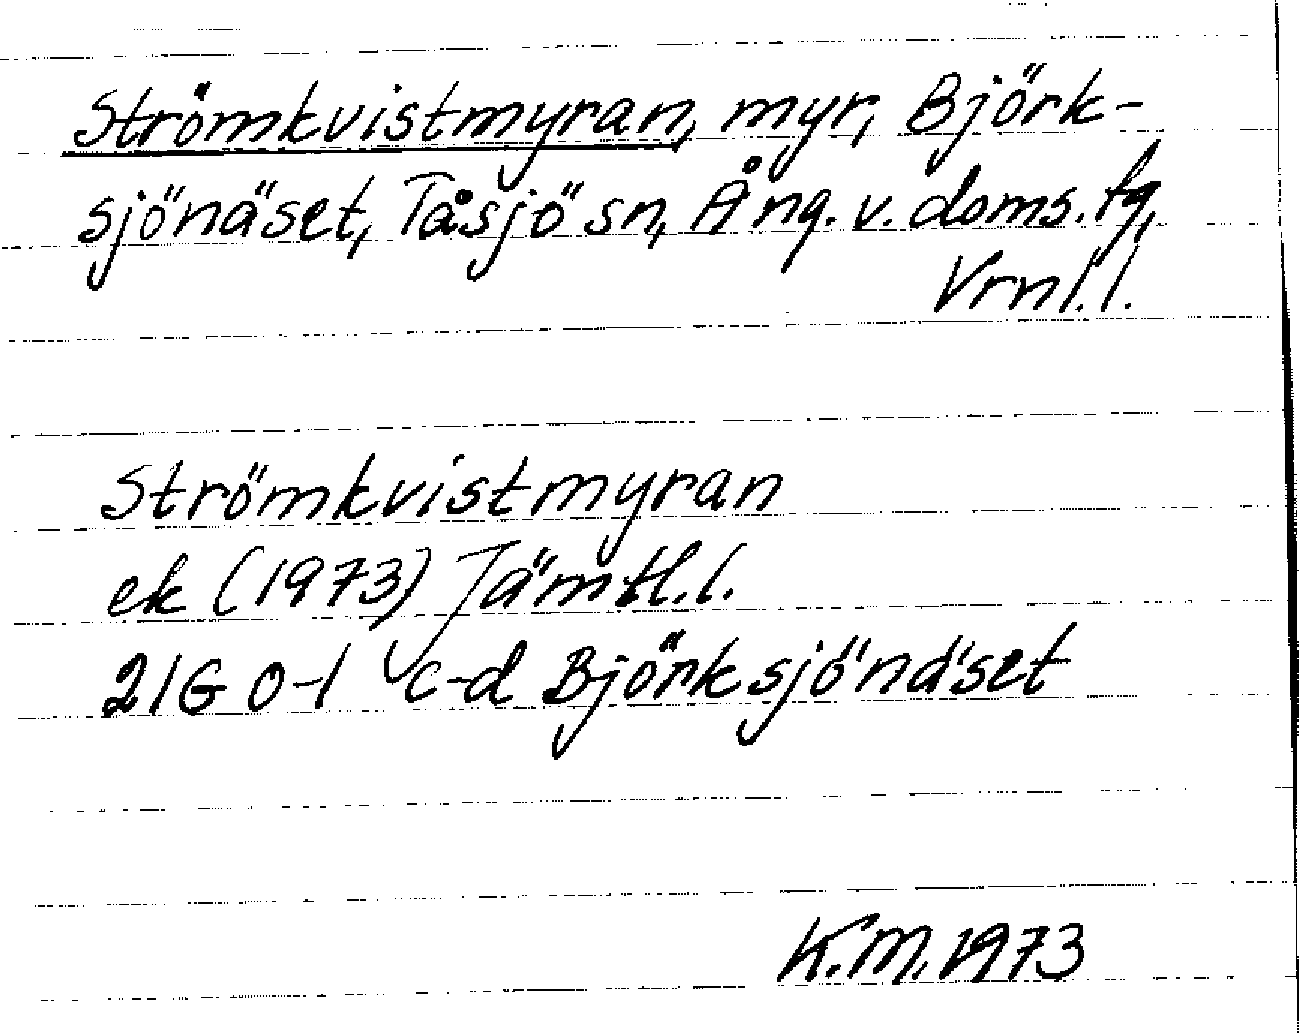 Strömkvistmyran, myr, Björk-
sjönäset, Tåsjö sn, Ång. v. doms. tg,
Vrnl. l.
Strömkvistmyran
ek (1973) Jämtl. l.
21G 0-1 c-d Björksjönäset
K.M. 1973